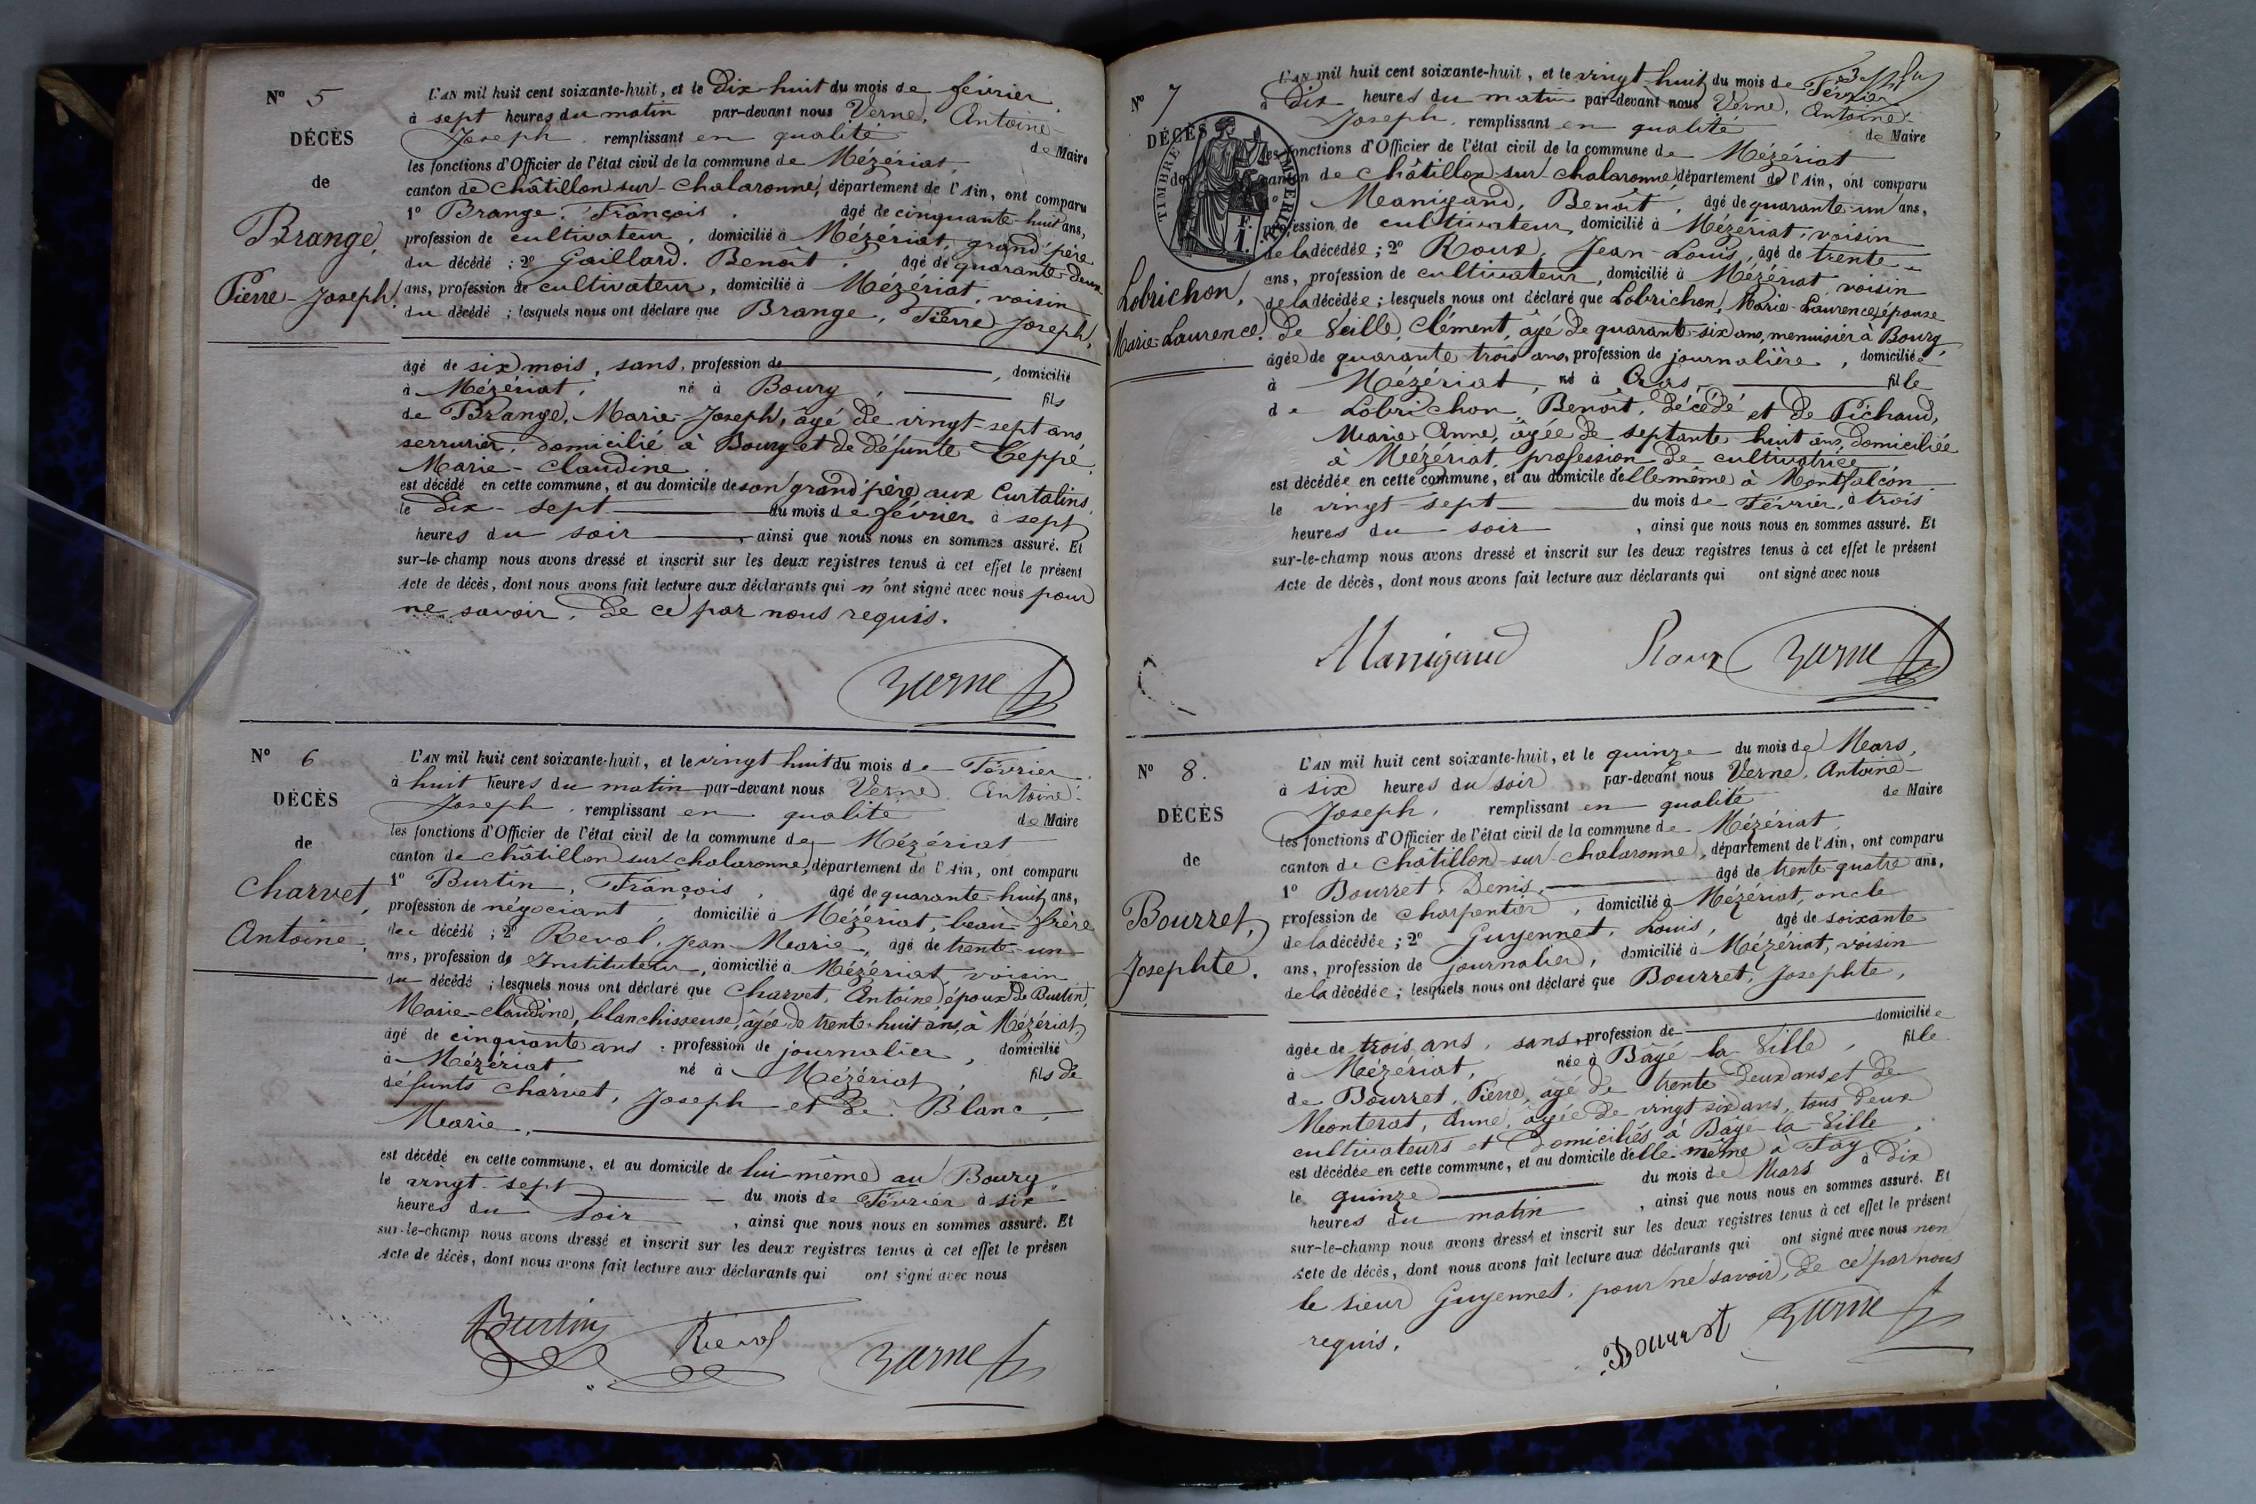 N° 5
DÉCÈS
de
Brange,
Pierre-Joseph.
L'AN mil huit cent soixante-huit, et le Dix-huit du mois de février,
à sept heures du matin par-devant nous Verne, Antoine-
Joseph, remplissant en qualité de Maire
les fonctions d'Officier de l'état civil de la commune de Mézériat,
canton de Châtillon-sur-Chalaronne, département de l'Ain, ont comparu
1° Brange, François, âgé de cinquante-huit ans,
profession de cultivateur, domicilié à Mézériat, grand'père
du décédé ; 2° Gaillard, Benoît, âgé de quarante-deux
ans, profession de cultivateur, domicilié à Mézériat, voisin
du décédé ; lesquels nous ont déclaré que Brange, Pierre Joseph,
âgé de six mois, sans, profession de , domicilié
à Mézériat, né à Bourg, fils
de Brange, Marie-Joseph, âgé de vingt-sept ans,
serrurier, domicilié à Bourg et de défunte Teppé,
Marie-Claudine.
est décédé en cette commune, et au domicile de son grand'père aux Curtalins,
le Dix-sept du mois de février à sept
heures du soir, ainsi que nous nous en sommes assuré. Et
sur-le-champ nous avons dressé et inscrit sur les deux registres tenus à cet effet le présent
Acte de décès, dont nous avons fait lecture aux déclarants qui n'ont signé avec nous pour
ne savoir, de ce par nous requis.
Verne
N° 6
DÉCÈS
de
Charvet,
Antoine,
L'AN mil huit cent soixante-huit, et le vingt huit du mois de Février,
à huit heures du matin par-devant nous Verne, Antoine-
Joseph, remplissant en qualité de Maire
les fonctions d'Officier de l'état civil de la commune de Mézériat
canton de Châtillon-sur-Chalaronne, département de l'Ain, ont comparu
1° Burtin, François, âgé de quarante-huit ans,
profession de négociant, domicilié à Mézériat, beau-frère
du décédé ; 2° Reval, Jean-Marie, âgé de trente-un
ans, profession de Instituteur, domicilié à Mézériat, voisin
du décédé ; lesquels nous ont déclaré que Charvet, Antoine, époux de Burtin,
Marie-Claudine, blanchisseuse, âgée de trente-huit ans, à Mézériat,
âgé de cinquante ans, profession de journalier, domicilié
à Mézériat, né à Mézériat, fils de
défunts Charvet, Joseph et de Blanc,
Marie,
est décédé en cette commune, et au domicile de lui-même au Bourg,
le vingt-sept du mois de Février à six
heures du soir, ainsi que nous nous en sommes assuré. Et
sur-le-champ nous avons dressé et inscrit sur les deux registres tenus à cet effet le présen
Acte de décès, dont nous avons fait lecture aux déclarants qui ont signé avec nous
Burtin Reval Verne
N° 7
DÉCÈS
de
TIMBRE IMPÉRIAL
F. 1.
Lobrichon,
Marie-Laurence.
L'AN mil huit cent soixante-huit, et le vingt-huit du mois de Février
à Dix heures du matin par-devant nous Verne, Antoine-
Joseph, remplissant en qualité de Maire
les fonctions d'Officier de l'état civil de la commune de Mézériat
canton de Châtillon-sur-Chalaronne, département de l'Ain, ont comparu
1° Manigand, Benoît, âgé de quarante-un ans,
profession de cultivateur, domicilié à Mézériat, voisin
de la décédée ; 2° Roux, Jean-Louis, âgé de trente
ans, profession de cultivateur, domicilié à Mézériat, voisin
de la décédée ; lesquels nous ont déclaré que Lobrichon, Marie-Laurence, épouse
de Veille, Clément, âgé de quarante-six ans, menuisier à Bourg,
âgée de quarante trois ans, profession de journalière, domiciliée
à Mézériat, né à Cras, fille
de Lobrichon, Benoît, décédé et de Pichaud,
Marie Anne, âgée de septante-huit ans, domiciliée
à Mézériat, profession de cultivatrice
est décédée en cette commune, et au domicile d'elle même à Montfalcon
le vingt-sept du mois de Février, à trois
heures du soir, ainsi que nous nous en sommes assuré. Et
sur-le-champ nous avons dressé et inscrit sur les deux registres tenus à cet effet le présent
Acte de décès, dont nous avons fait lecture aux déclarants qui ont signé avec nous
Manigand Roux Verne
N° 8.
DÉCÈS
de
Bourret,
Josephte.
L'AN mil huit cent soixante-huit, et le quinze du mois de Mars,
à six heures du soir par-devant nous Verne, Antoine-
Joseph, remplissant en qualité de Maire
les fonctions d'Officier de l'état civil de la commune de Mézériat,
canton de Châtillon-sur-Chalaronne, département de l'Ain, ont comparu
1° Bourret, Denis, âgé de trente-quatre ans,
profession de charpentier, domicilié à Mézériat, oncle
de la décédée ; 2° Guyennet, Louis, âgé de soixante
ans, profession de journalier, domicilié à Mézériat, voisin
de la décédée ; lesquels nous ont déclaré que Bourret, Josephte,
âgée de trois ans, sans, profession de domiciliée
à Mézériat, née à Bâgé-la-Ville, fille
de Bourret, Pierre, âgé de trente deux ans et de
Monterat, Anne, âgée de vingt-six ans, tous deux
cultivateurs et domiciliés à Bâgé-la-Ville,
est décédée en cette commune, et au domicile d'elle-même à Fay
le quinze du mois de Mars à Dix
heures du matin, ainsi que nous nous en sommes assuré. Et
sur-le-champ nous avons dressé et inscrit sur les deux registres tenus à cet effet le présent
Acte de décès, dont nous avons fait lecture aux déclarants qui ont signé avec nous non
le sieur Guyennet, pour ne savoir, de ce par nous
requis.
Bourret Verne